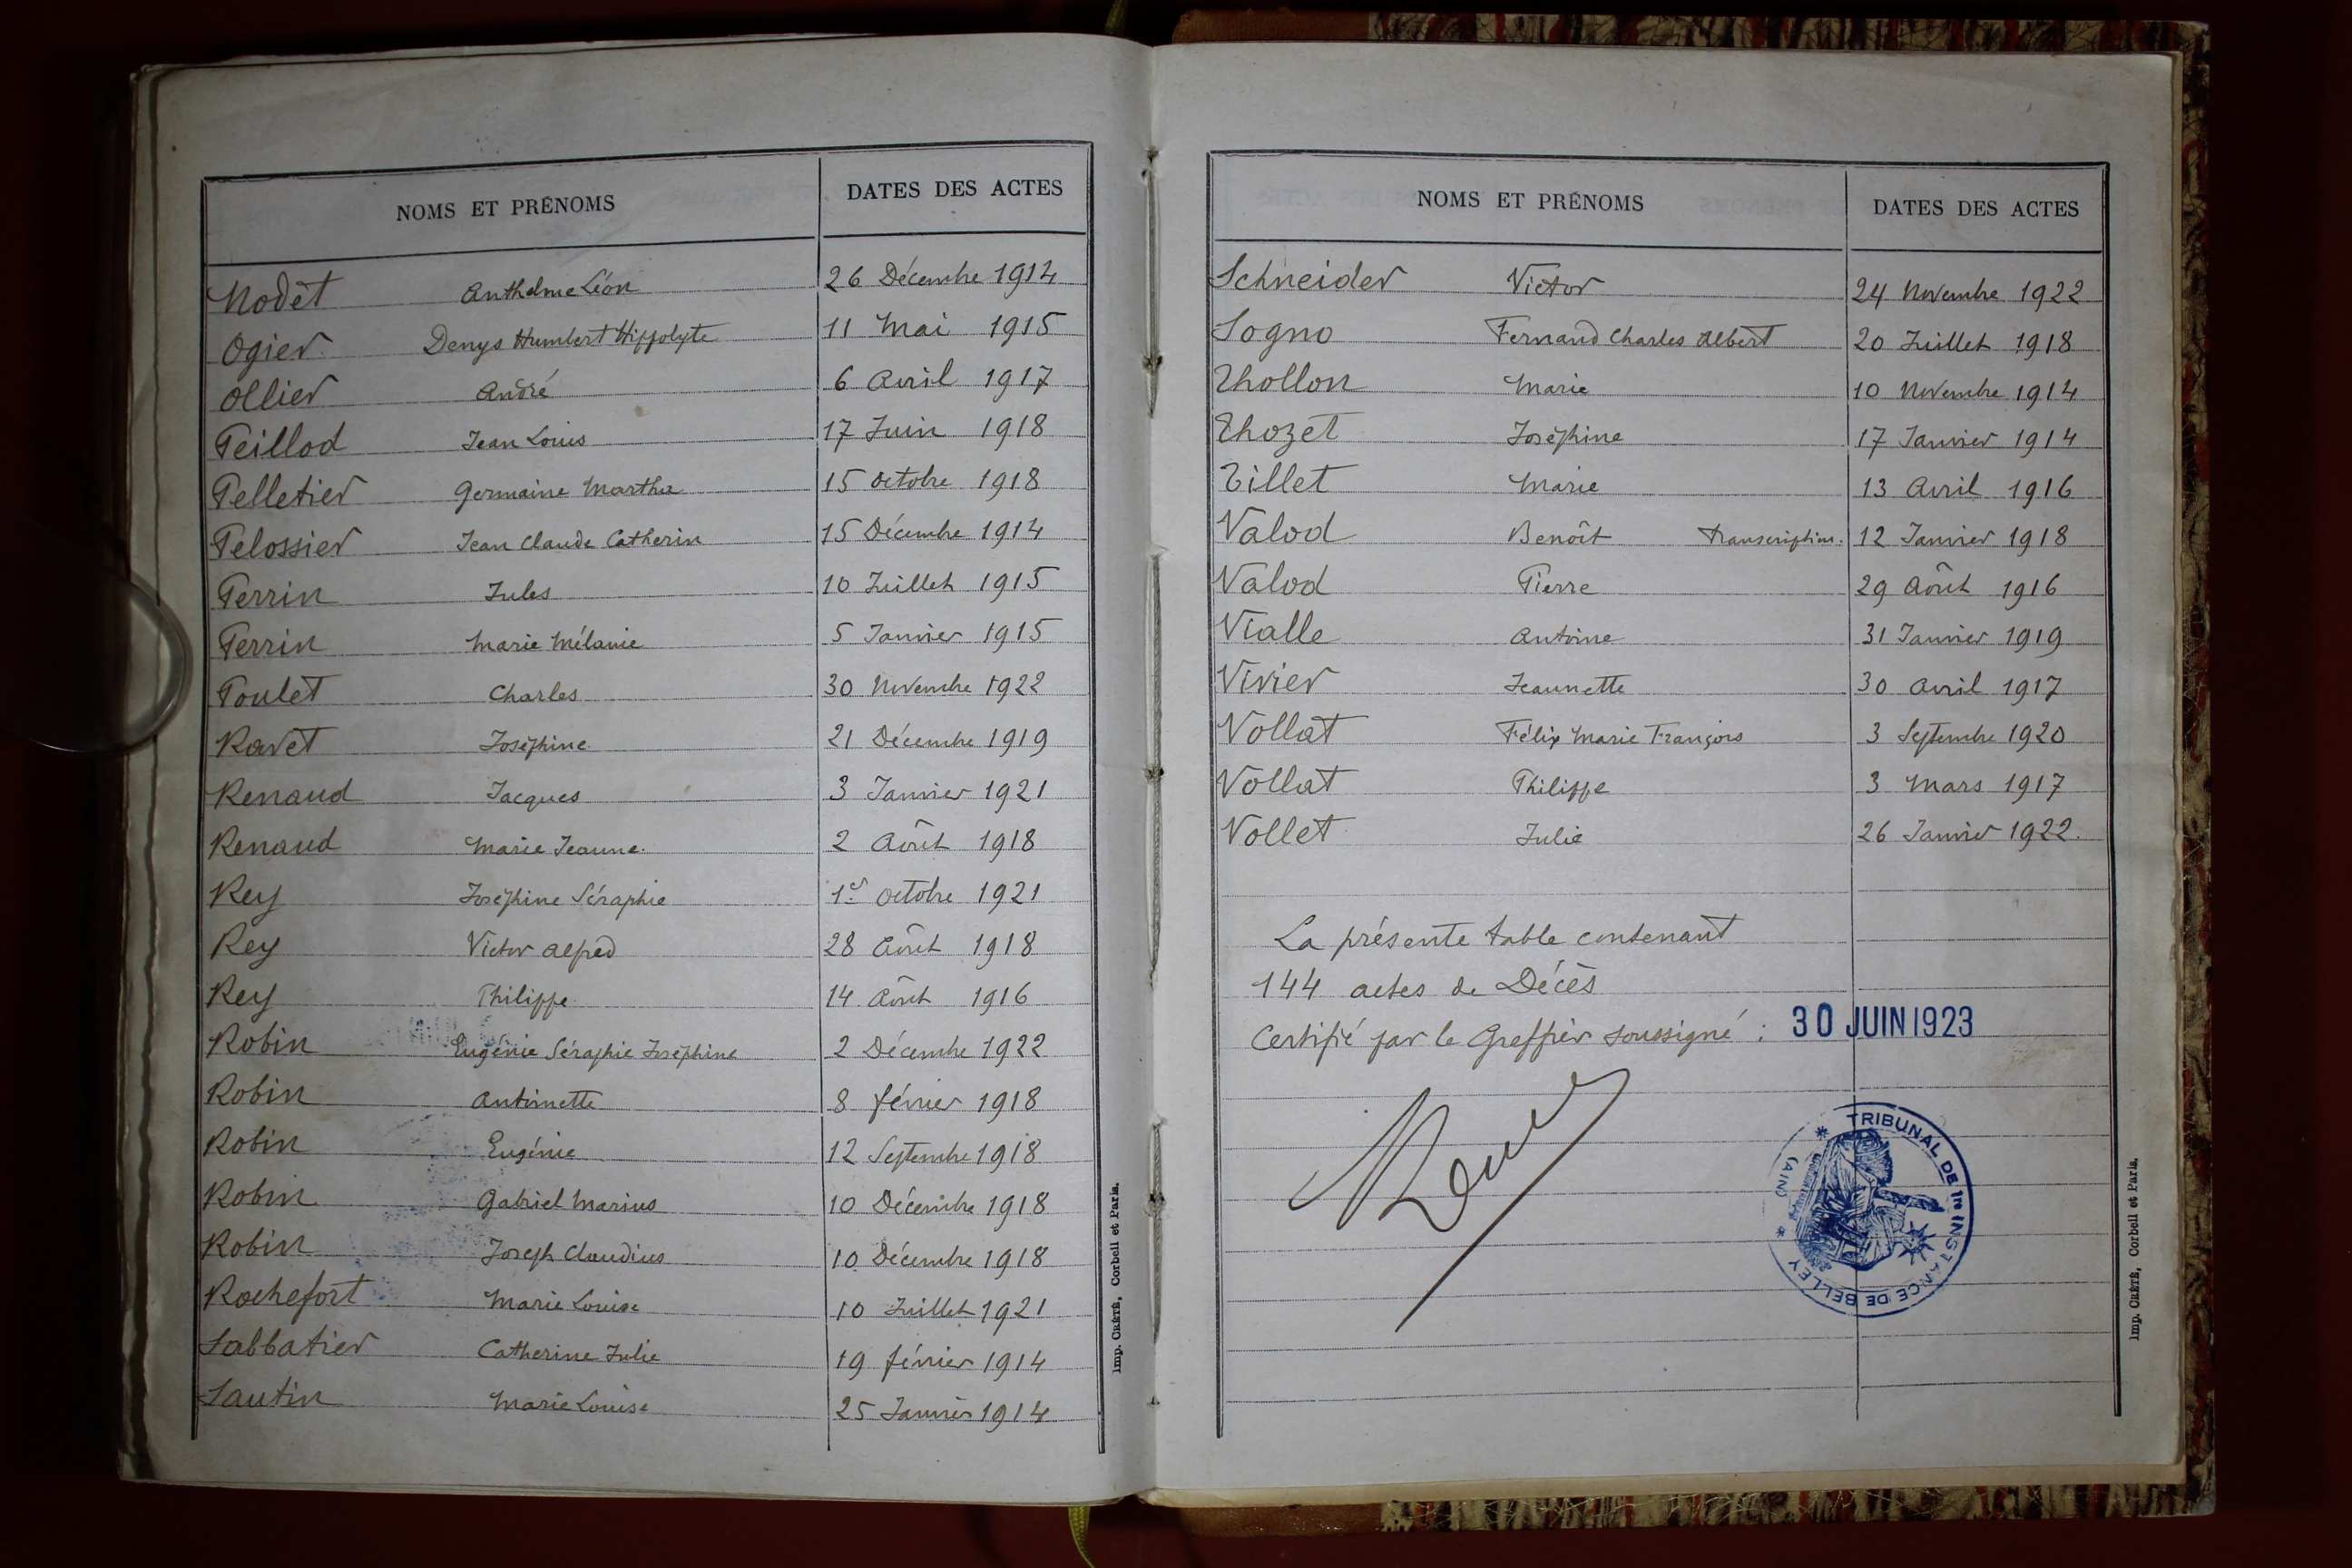 NOMS ET PRÉNOMS DATES DES ACTES
Nodet Anthelme Léon 26 Décembre 1914
Ogier Denys Humbert Hippolyte 11 Mai 1915
Ollier André 6 Avril 1917
Peillod Jean Louis 17 Juin 1918
Pelletier Germaine Marthe 15 Octobre 1918
Pelossier Jean Claude Catherin 15 Décembre 1914
Perrin Jules 10 Juillet 1915
Perrin Marie Mélanie 5 Janvier 1915
Poulet Charles 30 Novembre 1922
Ravet Joséphine 21 Décembre 1919
Renaud Jacques 3 Janvier 1921
Renaud Marie Jeanne. 2 Août 1918
Rey Joséphine Séraphie 1er Octobre 1921
Rey Victor Alfred 28 Août 1918
Rey Philippe 14 Août 1916
Robin Eugénie Séraphie Joséphine 2 Décembre 1922
Robin Antoinette 8 février 1918
Robin Eugénie 12 Septembre 1918
Robin Gabriel Marius 10 Décembre 1918
Robin Joseph Claudius 10 Décembre 1918
Rochefort Marie Louise 10 Juillet 1921
Sabbatier Catherine Julie 19 février 1914
Sautin Marie Louise 25 Janvier 1914
Imp. CRÉTÉ, Corbeil et Paris.
NOMS ET PRÉNOMS DATES DES ACTES
Schneider Victor 24 Novembre 1922
Sogno Fernand Charles Albert 20 Juillet 1918
Thollon Marie 10 Novembre 1914
Thozet Joséphine 17 Janvier 1914
Tillet Marie 13 Avril 1916
Valod Benoît transcription. 12 Janvier 1918
Valod Pierre 29 Août 1916
Vialle Antoine 31 Janvier 1919
Vivier Jeannette 30 Avril 1917
Vollat Félix Marie François 3 Septembre 1920
Vollat Philippe 3 Mars 1917
Vollet Julie 26 Janvier 1922.
La présente table contenant
144 actes de Décès
Certifié par le Greffier soussigné : 30 JUIN 1923
TRIBUNAL DE 1re INSTANCE DE BELLEY
* (AIN) *
Imp. CRÉTÉ, Corbeil et Paris.